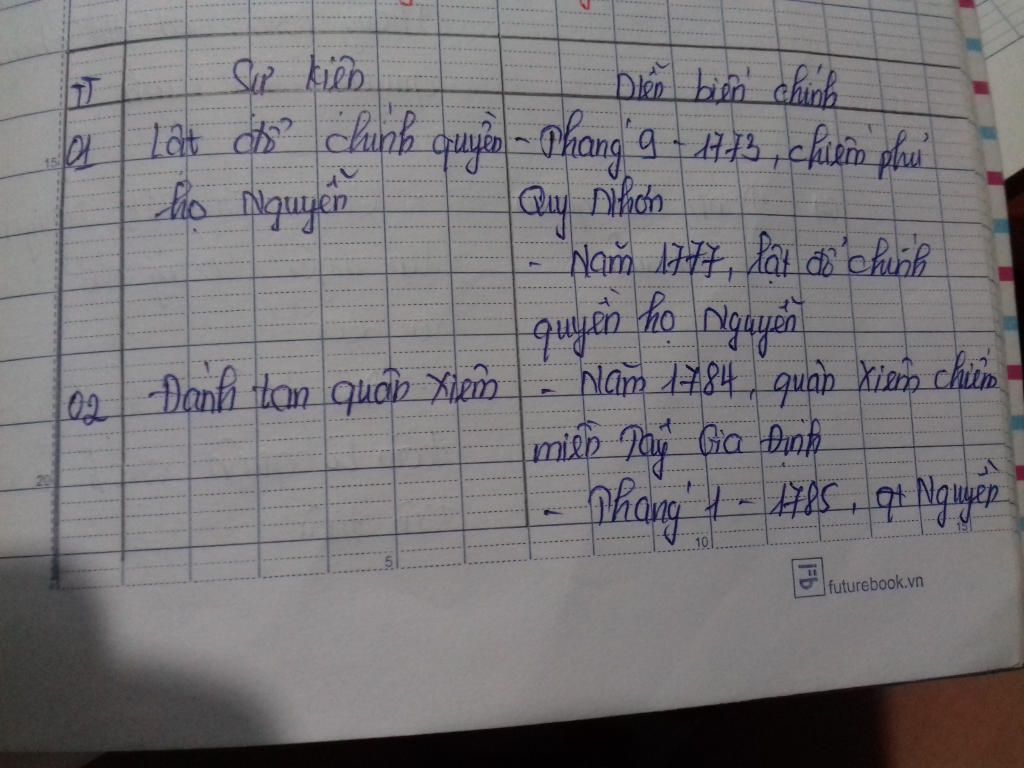 TT Sự kiện Diễn biến chính
01 Lật đổ chính quyền - Tháng 9 - 1773, chiếm phủ
họ Nguyễn Quy Nhơn
- Năm 1777, lật đổ chính
quyền họ Nguyễn
02 Đánh tan quân Xiêm - Năm 1784, quân Xiêm chiếm
miền Tây Gia Định
- Tháng 1 - 1785, qt Nguyễn
15
20
5
10
15
futurebook.vn